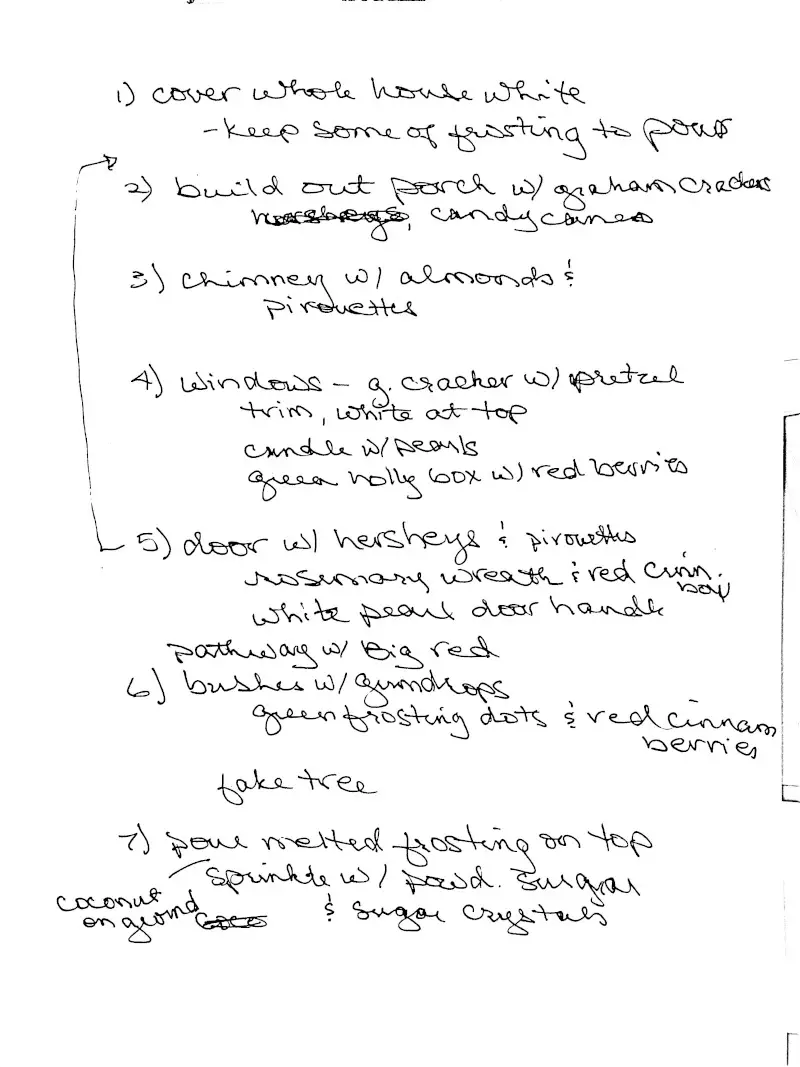 1) cover whole house white
- keep some of frosting to pour
2) build out porch w/ graham crackers
hersheys, candy canes
3) chimney w/ almonds &
pirouettes
4) windows - g. cracker w/ pretzel
trim, white at top
candle w/ pearls
green holly box w/ red berries
5) door w/ hersheys & pirouettes
rosemary wreath & red cinn.
bow
white pearl door handle
pathway w/ Big red
6) bushes w/ gumdrops
green frosting dots & red cinnam
berries
fake tree
7) pour melted frosting on top
sprinkle w/ powd. sugar
coconut
on ground coco & sugar crystals